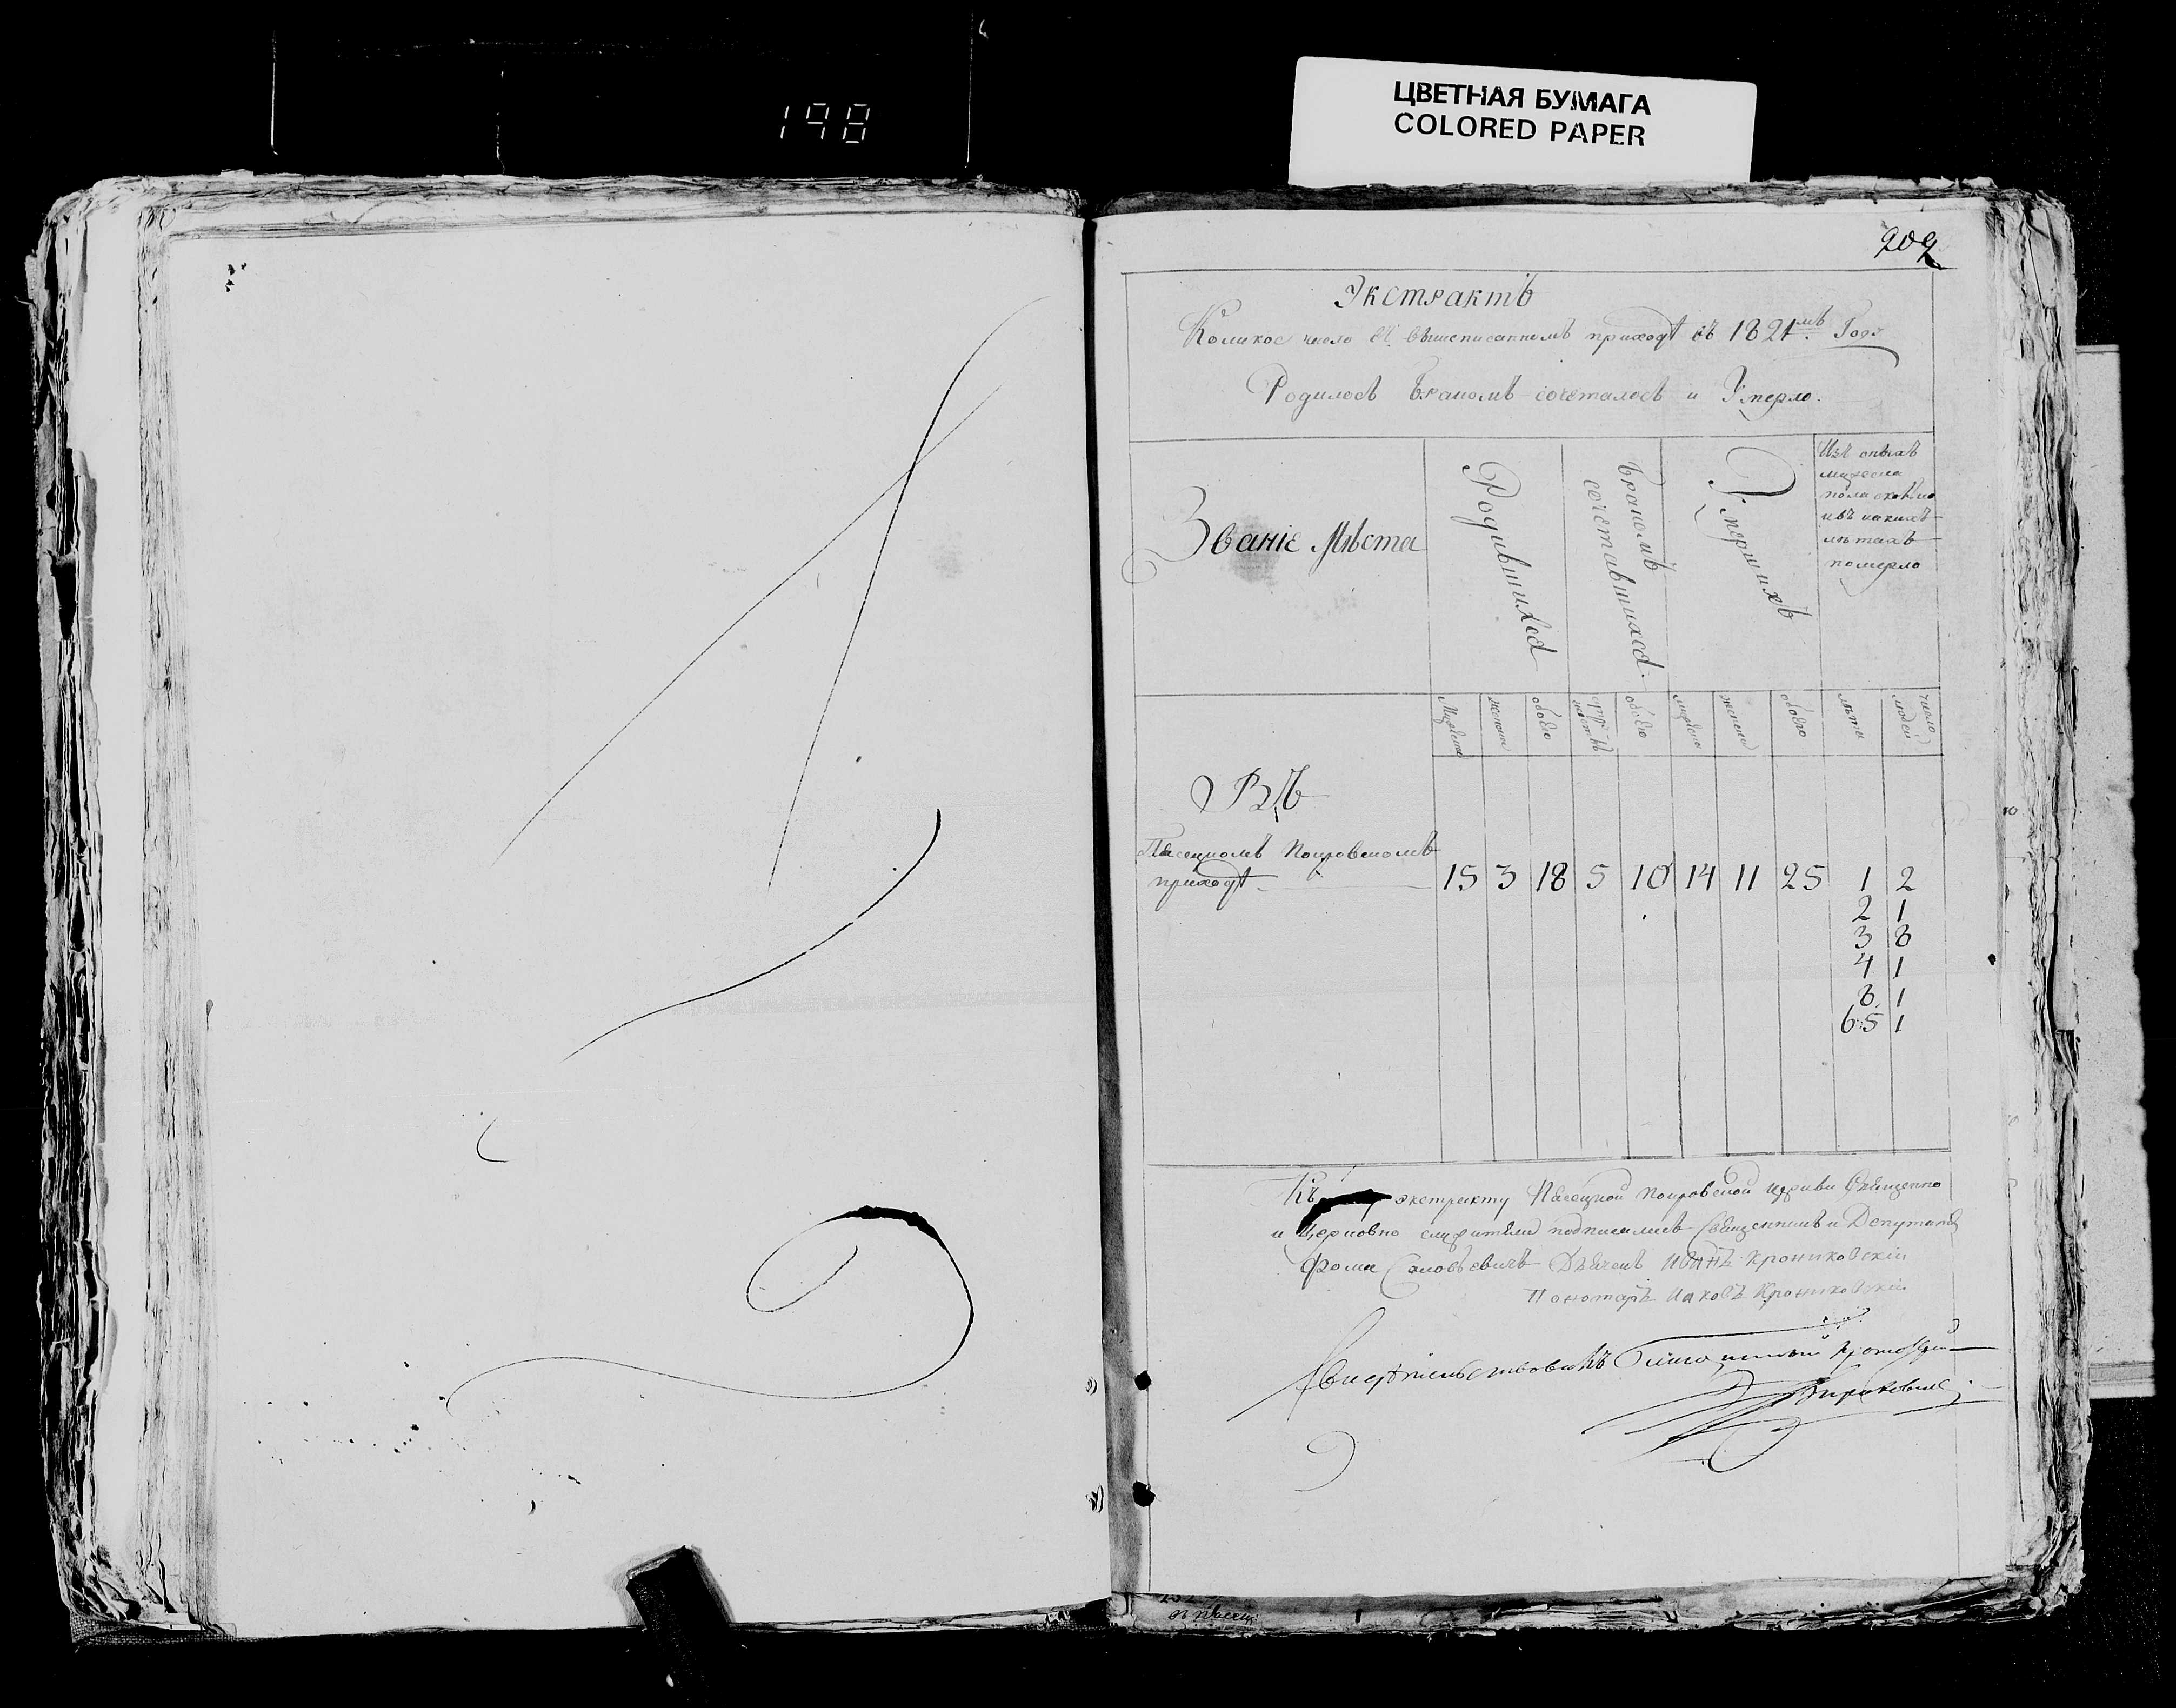 198
ЦВЕТНАЯ БУМАГА
COLORED PAPER
909
Экстрактъ
Коликое число въ вышеписанномъ приходѣ въ 1821мъ Годѣ
Родилось бракомъ сочеталось и Умерло.
Званіе Мѣста
Родившихся
бракомъ сочетавшихся.
Умершихъ
Изъ оныхъ
мужеска
пола сколко
лѣтахъ
померло
Мужеска
женска
обоего
обоего
мужеска
женска
обоего
лѣта
число людей
Въ
Пасецкомъ Покровскомъ
приходѣ
15 3 18 5 10 14 11 25 1 2
2 1
3 8
4 1
8 1
65 1
Къ экстракту Пасецкой Покровской церкви Священно
и Церковно служители подписались Священникъ и Депутатъ
Фома Соловьевичъ Дьячекъ Иванъ Крониковскій
Пономарь Иаковъ Крониковскій
Свидѣтельствовалъ